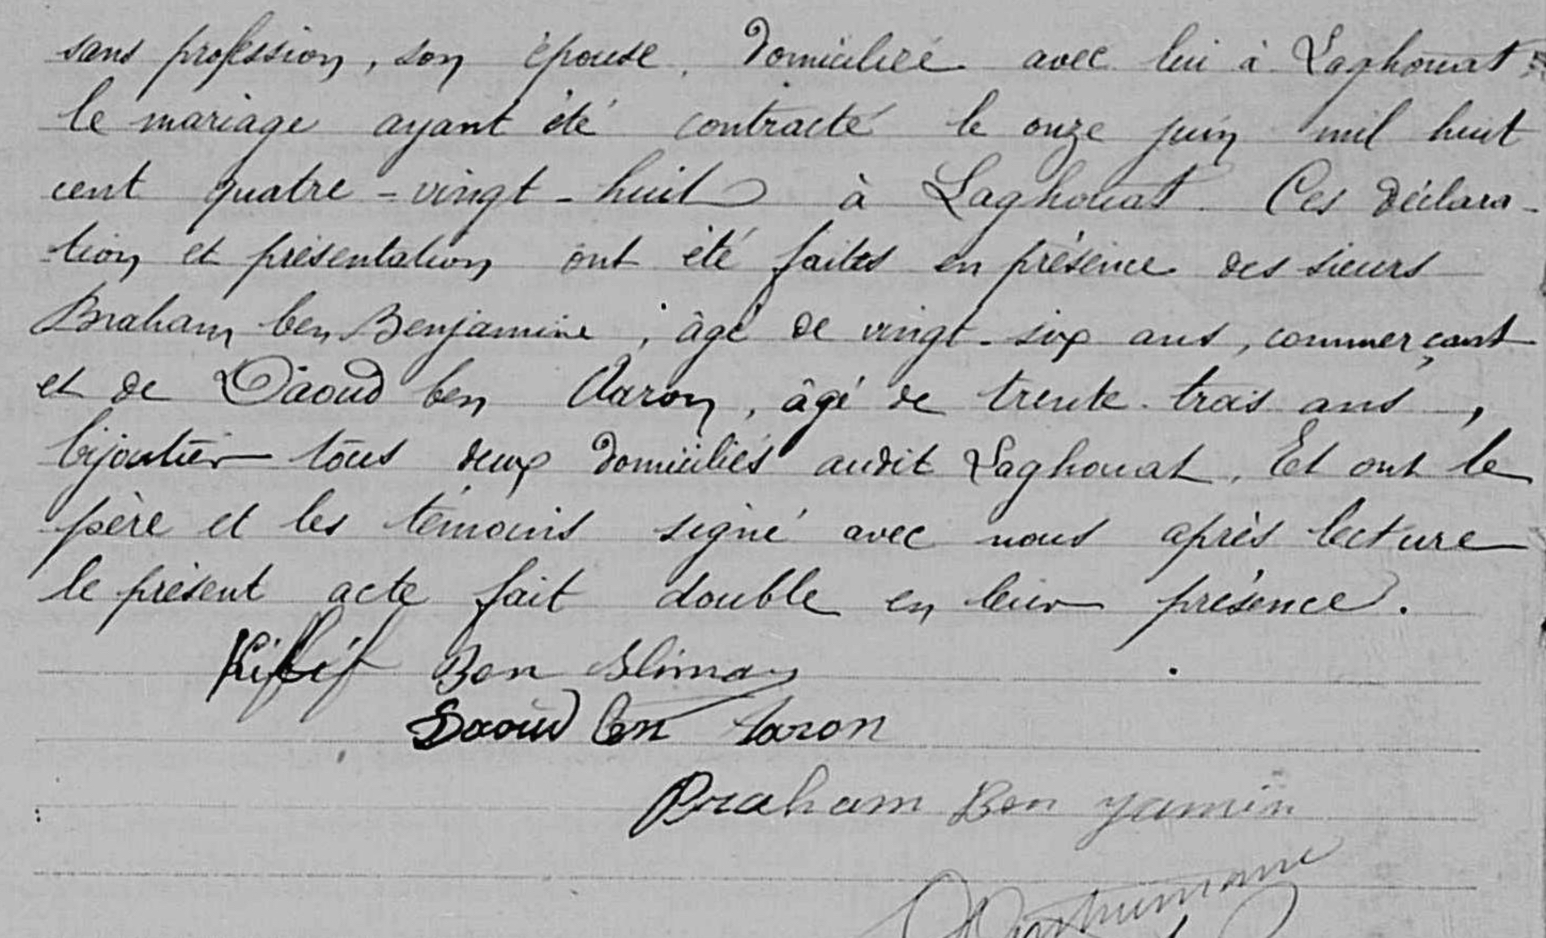 sans profession, son épouse, domiciliée avec lui à Laghouat
le mariage ayant été contracté le onze juin mil huit
cent quatre-vingt-huit à Laghouat. Ces déclara-
tion et présentation ont été faites en présence des sieurs
Braham ben Benjamine, âgé de vingt-six ans, commerçant
et de Daoud ben Aaron, âgé de trente-trois ans,
bijoutier tous deux domiciliés audit Laghouat. Et ont le
père et les témoins signé avec nous après lecture
le présent acte fait double en leur présence.
Ben Sliman
Daoud ben Aaron
Braham Ben yamin